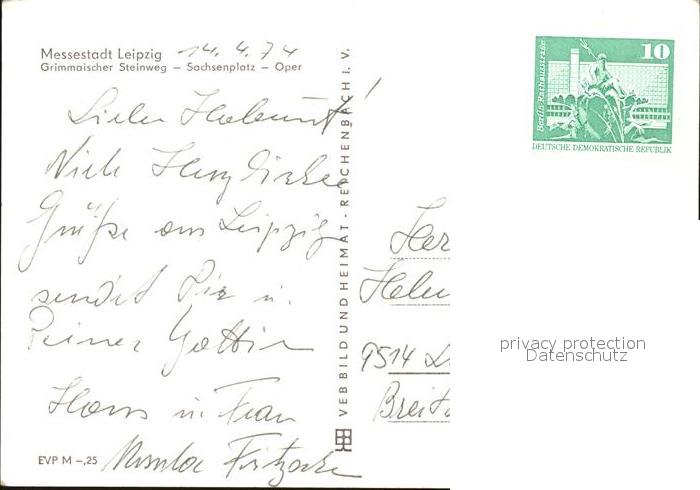 Messestadt Leipzig 14. 4. 74
Grimmaischer Steinweg – Sachsenplatz – Oper
Lieber Helmut!
Viele Herzliche
Grüße aus Leipzig
sendet Dir u.
Deiner Gattin
Hans u. Frau
EVP M –,25 Ursula
VEB BILD UND HEIMAT · REICHENBACH i. V.
10
Berlin, Rathausstraße
DEUTSCHE DEMOKRATISCHE REPUBLIK
Her
Helm
9514
Breit
privacy protection
Datenschutz